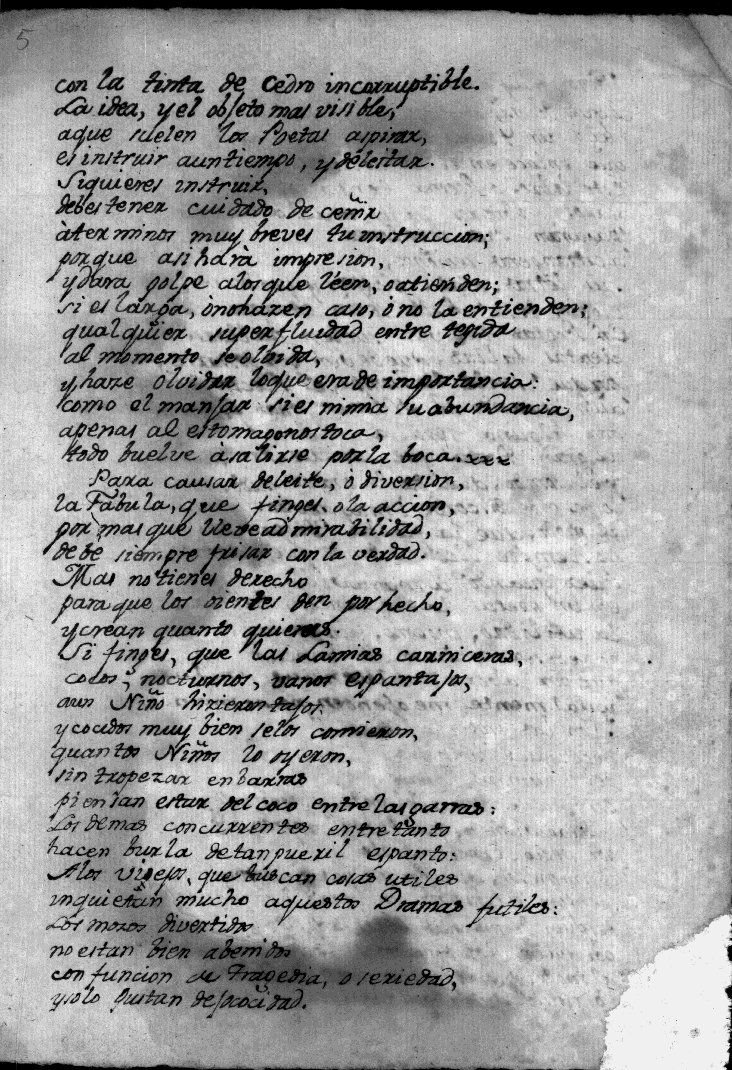 5
con la tinta de Cedro incorruptible.
La idea, y el objeto mas visible,
aque suelen los Poetas aspirar,
es instruir auntiempo, y deleitar.
Siquieres instruir,
debes tener cuidado de ceñir
à terminos muy breves tu instruccion;
porque asi harà impresion,
y dara golpe alosque léen, o atienden;
si es larga, ò no hazen caso, ò no la entienden;
qualquier superfluidad entretegida
al momento se olvida,
y haze olvidar loque era de importancia:
como el manjar si es nimia su abundancia,
apenas al estomago nos toca,
todo buelve à salirse por la boca.
Para causar deleite, ò diversion,
la Fabula, que finges, o la accion,
por mas que lleve admirabilidad,
debe siempre frisar con la verdad.
Mas no tienes derecho
para que los oientes den por hecho,
y crean quanto quieras.
Si finges, que las Lamias carniceras,
cocos nocturnos, vanos espantajos,
aun Niño hizieron tajos,
y cocidos muy bien selos comieron,
quantos Niños lo oyeron,
sin tropezar en barras
piensan estar del coco entre las garras:
Los demas concurrentes entre tanto
hacen burla detan pueril espanto:
Alos viejos, que buscan cosas utiles
inquietan mucho aquestos Dramas futiles:
Los mozos divertidos
no estan bien abenidos
con funcion de Tragedia, o seriedad,
y solo gustan de jococidad.